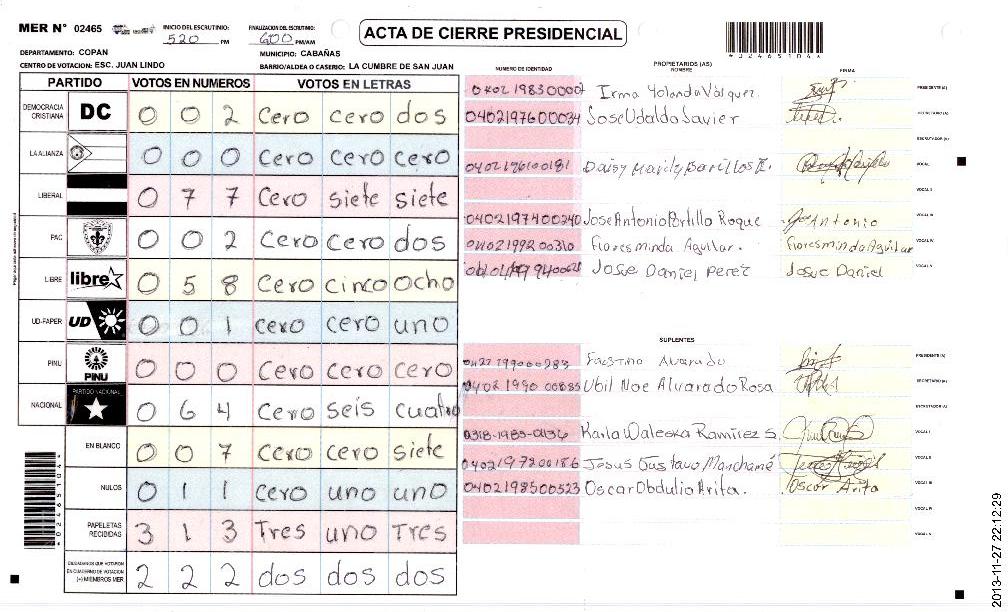 MER N° 02465 INICIO DEL ESCRUTINIO: 520 PM FINALIZACION DEL ESCRUTINIO: 600 PM/AM
ACTA DE CIERRE PRESIDENCIAL
DEPARTAMENTO: COPAN MUNICIPIO: CABAÑAS
CENTRO DE VOTACION: ESC. JUAN LINDO BARRIO/ALDEA O CASERIO: LA CUMBRE DE SAN JUAN
PARTIDO VOTOS EN NUMEROS VOTOS EN LETRAS
DEMOCRACIA CRISTIANA DC 0 0 2 cero cero dos
LA ALIANZA 0 0 0 cero cero cero
LIBERAL 0 7 7 cero siete siete
PAC 0 0 2 cero cero dos
LIBRE libre 0 5 8 cero cinco ocho
UD-FAPER UD 0 0 1 cero cero uno
PINU PINU 0 0 0 cero cero cero
NACIONAL PARTIDO NACIONAL 0 6 4 cero seis cuatro
EN BLANCO 0 0 7 cero cero siete
NULOS 0 1 1 cero uno uno
PAPELETAS RECIBIDAS 3 1 3 Tres uno Tres
CIUDADANOS QUE VOTARON EN CUADERNO DE VOTACION (+) MIEMBROS MER 2 2 2 dos dos dos
PROPIETARIOS (AS)
NUMERO DE IDENTIDAD NOMBRE FIRMA
Irma Yolanda Vásquez PRESIDENTE (A)
0402197600034 Jose Udaldo Lavier SECRETARIO (A)
ESCRUTADOR (A)
0402196100181 Daisy Marily VOCAL I
VOCAL II
0402197400240 Jose Antonio Portillo Roque Jose Antonio VOCAL III
0402199200310 Floresminda Aguilar. Floresminda Aguilar VOCAL IV
Josue Daniel Perez Josue Daniel VOCAL V
SUPLENTES
Alvarado PRESIDENTE (A)
0402 1990 00835 Ubil Noe Alvarado Rosa SECRETARIO (A)
ESCRUTADOR (A)
0318-1985-0136 Karla Waleska Ramirez S. VOCAL I
0402197200186 Jesus Gustavo Manchamé VOCAL II
0402198500523 Oscar Obdulio Arita. Oscar Arita VOCAL III
VOCAL IV
VOCAL V
2013-11-27 22:12:29